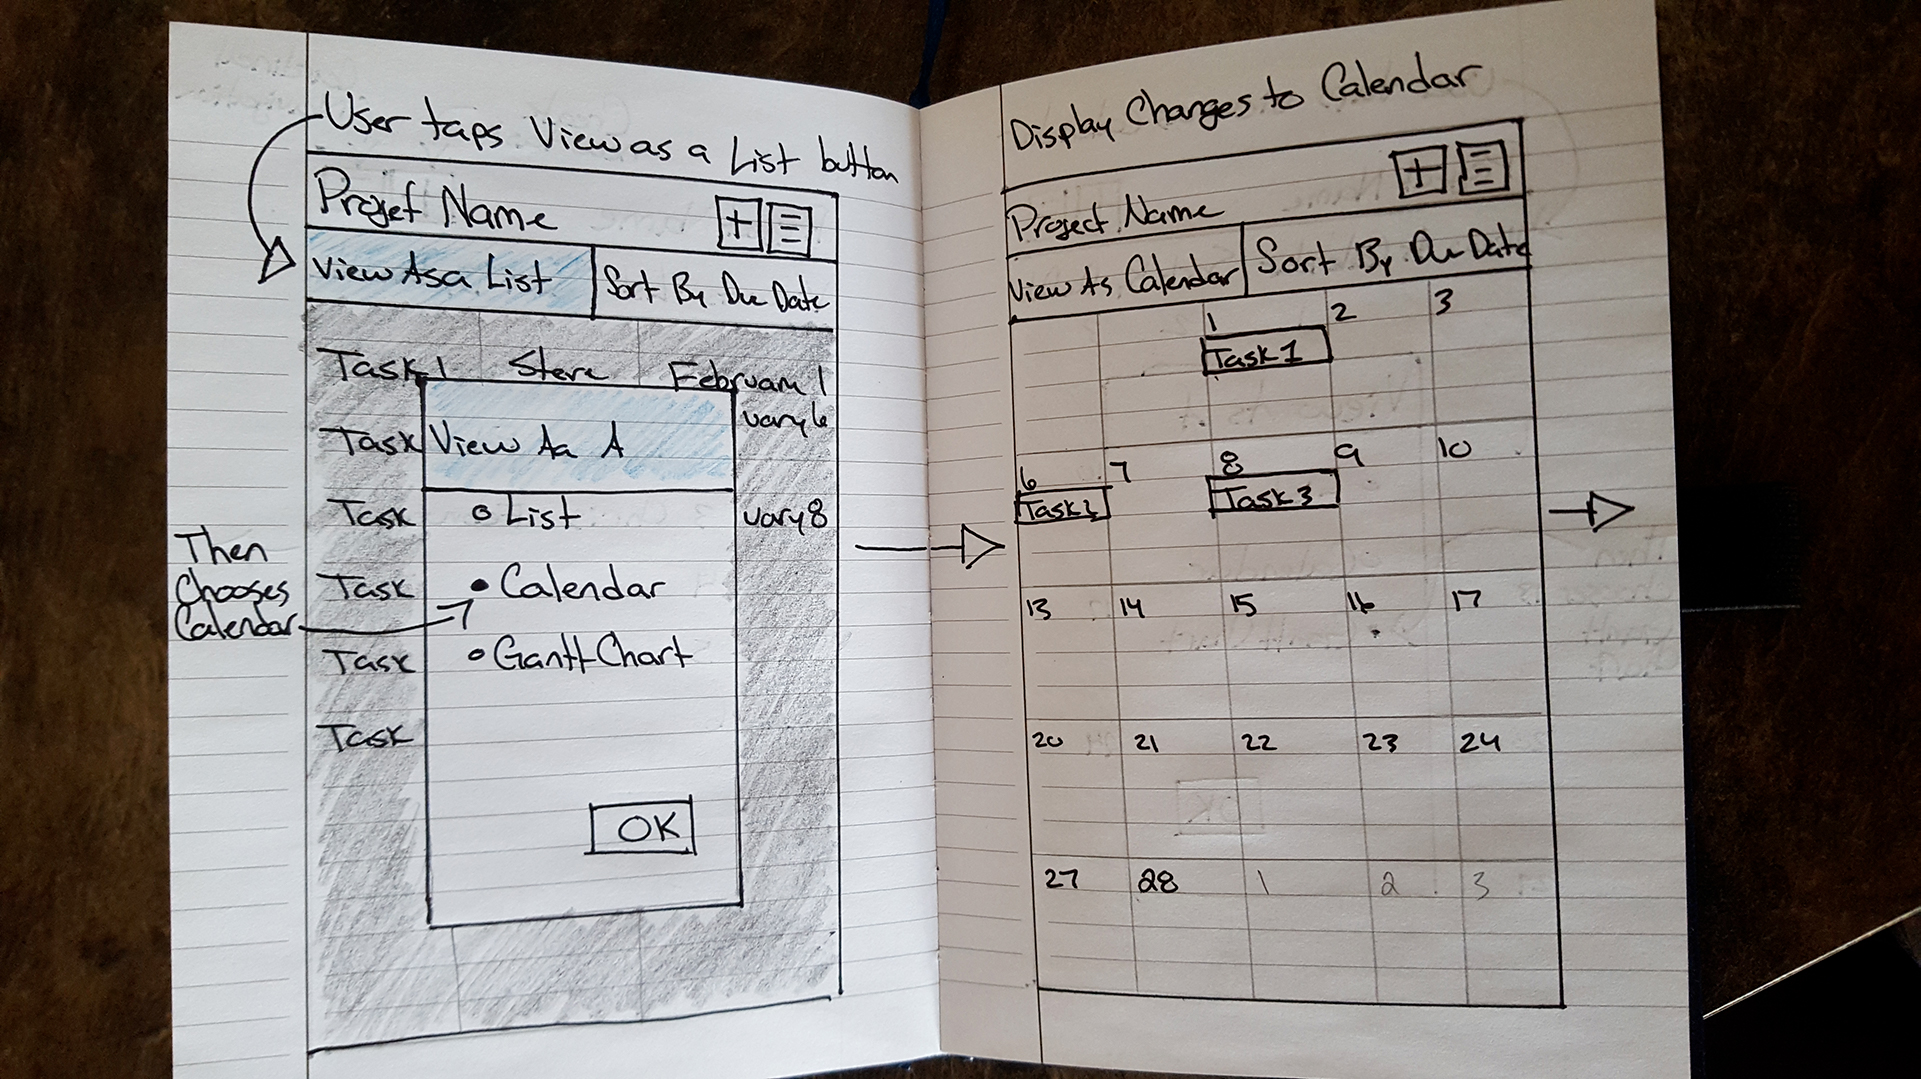 User taps View as a List button
Project Name
View As a List
Sort By Due Date
Task 1 Steve February 1
Task
uary 6
View As A
Task
List
uary 8
Then
Chooses
Calendar
Task
Calendar
Task
Gantt Chart
Task
OK
Display Changes to Calendar
Project Name
View As Calendar
Sort By Due Date
1 2 3
Task 1
6 7 8 9 10
Task 2 Task 3
13 14 15 16 17
20 21 22 23 24
27 28 1 2 3